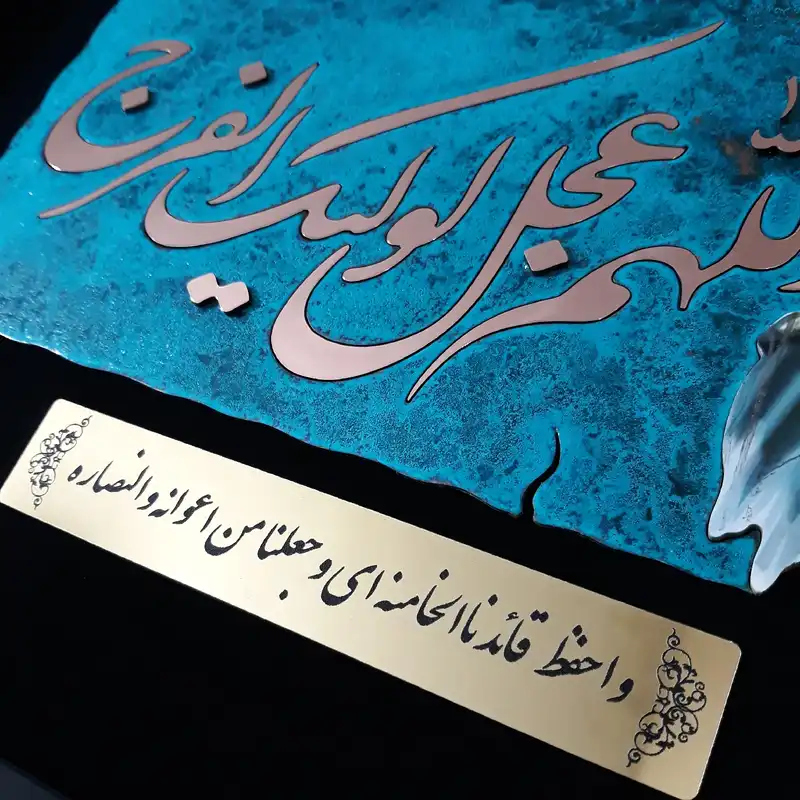 اللهم عجل لولیک الفرج
واحفظ قائدنا الخامنه ای وجعلنا من اعوانه والنصاره